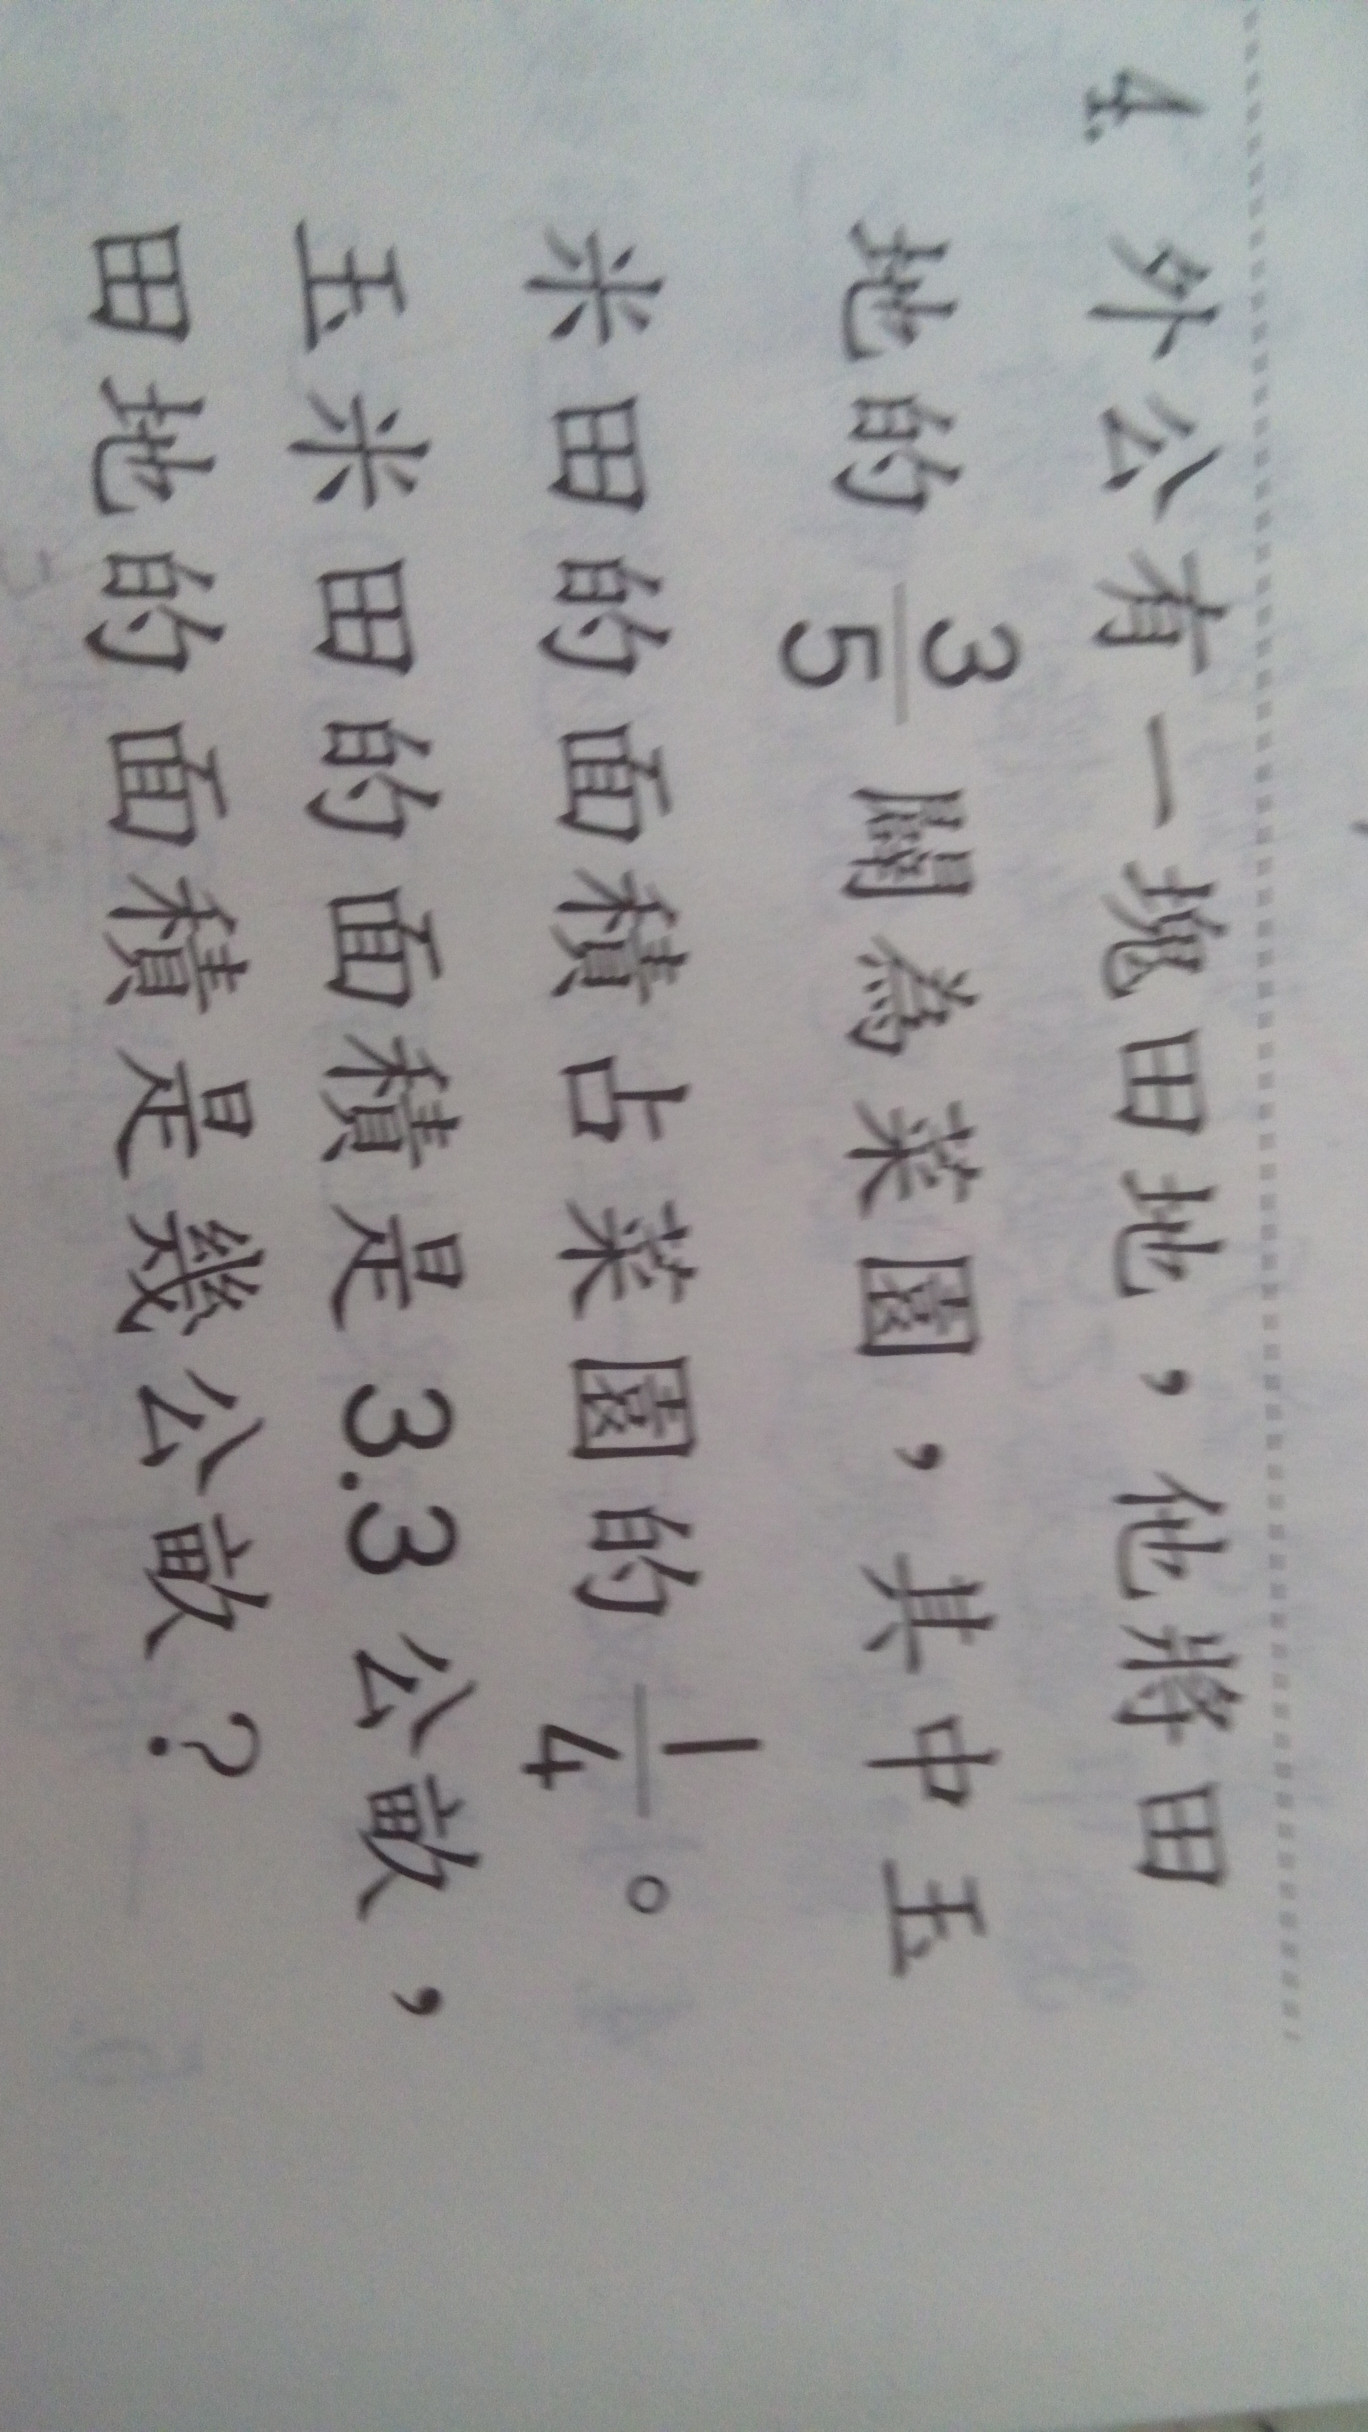 4. 外公有一塊田地，他將田
地的 3/5 闢為菜園，其中玉
米田的面積占菜園的 1/4。
玉米田的面積是 3.3 公畝，
田地的面積是幾公畝？